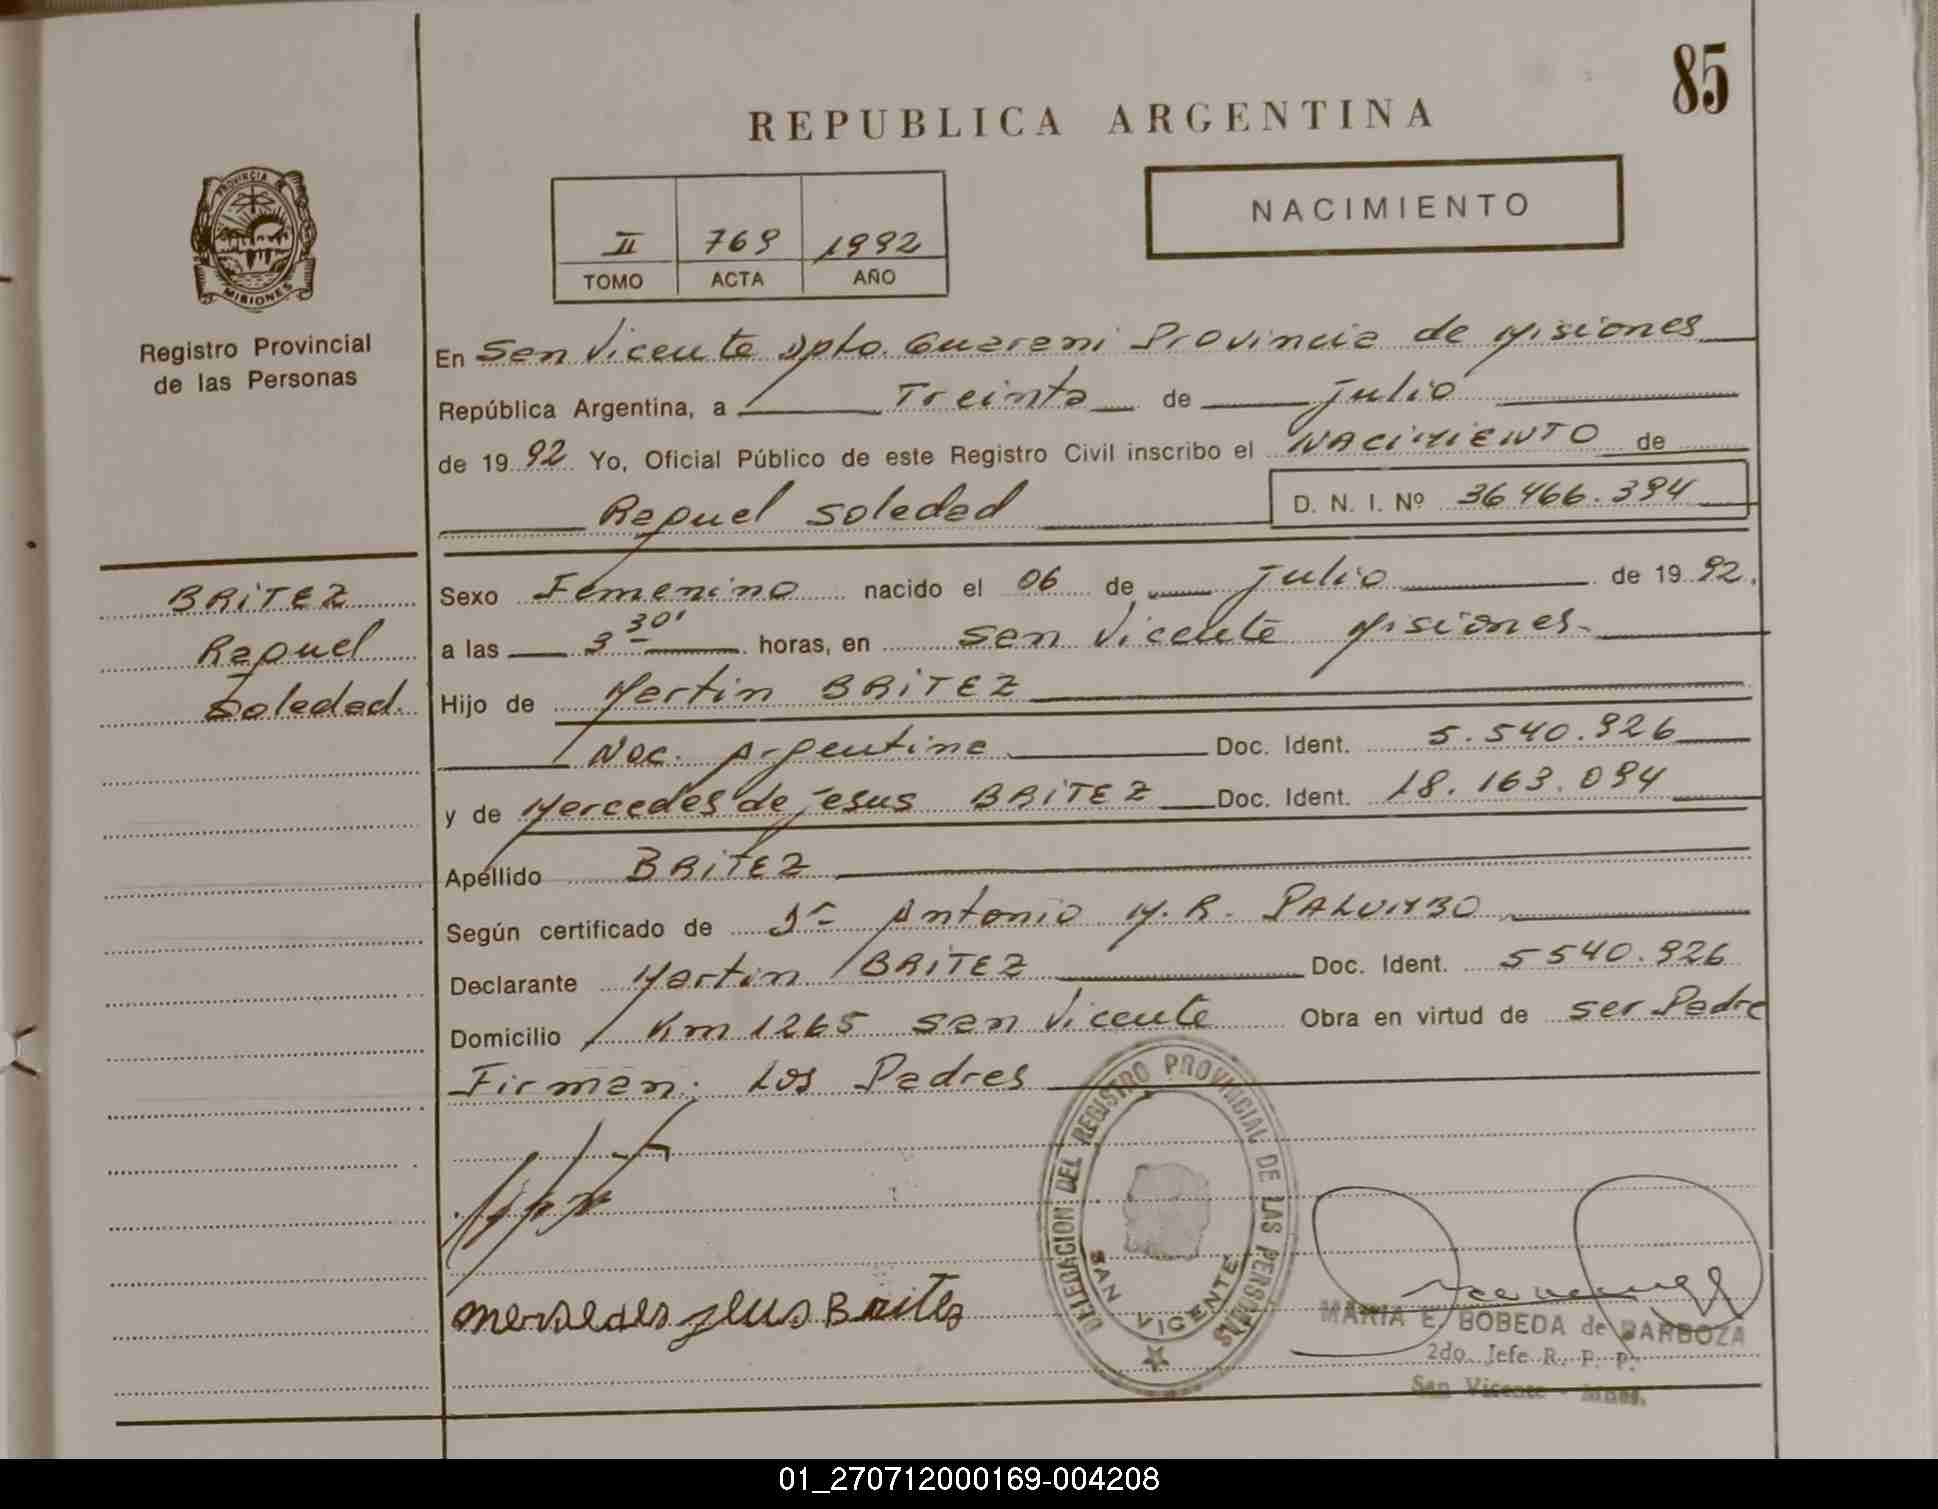 85
REPUBLICA ARGENTINA
NACIMIENTO
II 769 1992
TOMO ACTA AÑO
PROVINCIA DE
MISIONES
Registro Provincial
de las Personas
En San Vicente Dpto. Guarani Provincia de Misiones
República Argentina, a Treinta de Julio
de 1992 Yo, Oficial Público de este Registro Civil inscribo el NACIMIENTO de
Raquel Soledad D. N. I. Nº 36466.394
BRITEZ
Raquel
Soledad.
Sexo Femenino nacido el 06 de Julio de 1992.
a las 3 30' horas, en San Vicente Misiones-
Hijo de Martin BRITEZ
Nac. Argentina Doc. Ident. 5.540.926
y de Mercedes de Jesus BRITEZ Doc. Ident. 18.163.094
Apellido BRITEZ
Según certificado de Dr Antonio M. R. PALUMBO
Declarante Martin BRITEZ Doc. Ident. 5540.926
Domicilio Km 1265 San Vicente Obra en virtud de ser Padre
Firman: Los Padres
DELEGACION DEL REGISTRO PROVINCIAL DE LAS PERSONAS
SAN VICENTE
Mersedes Jeus Britez
MARIA E. BOBEDA de BARBOZA
2do. Jefe R. P. P.
San Vicente - Mnes.
01_270712000169-004208